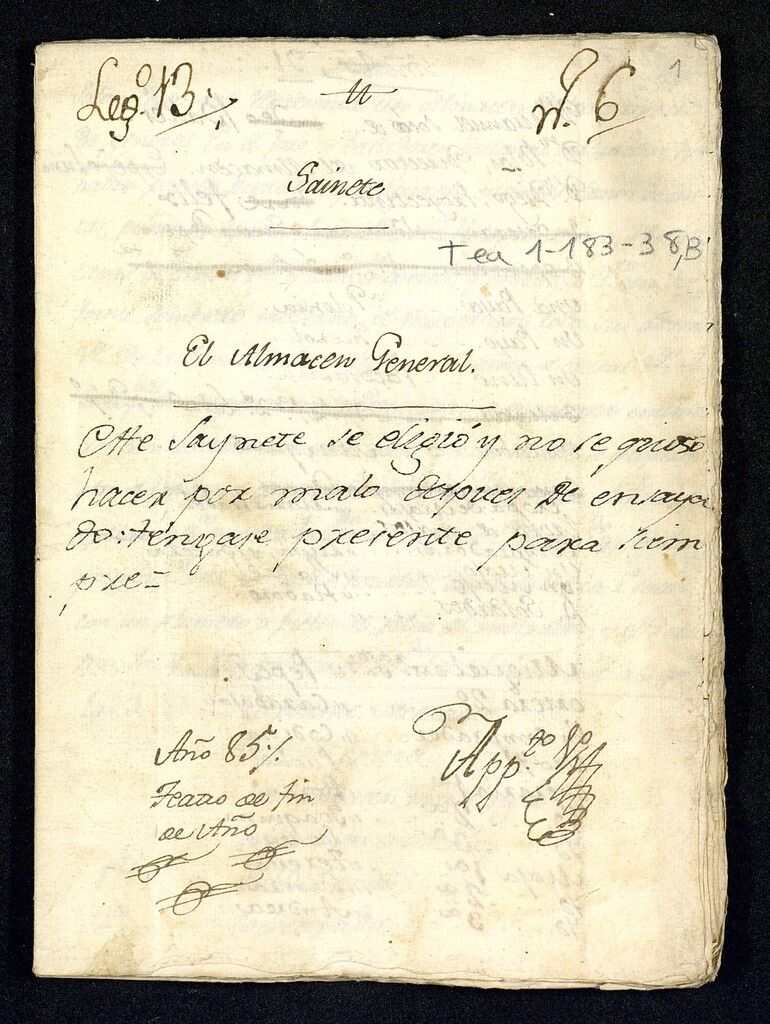 1
Leg.o 13.
n.o 6
Sainete
Tea 1-183-38,B
El Almacen General.
Este Saynete se eligió y no se quiso
hacer por malo despues de ensaya
do: tengase presente para siem
pre=
Año 85
App.do
Teatro de fin
de Año